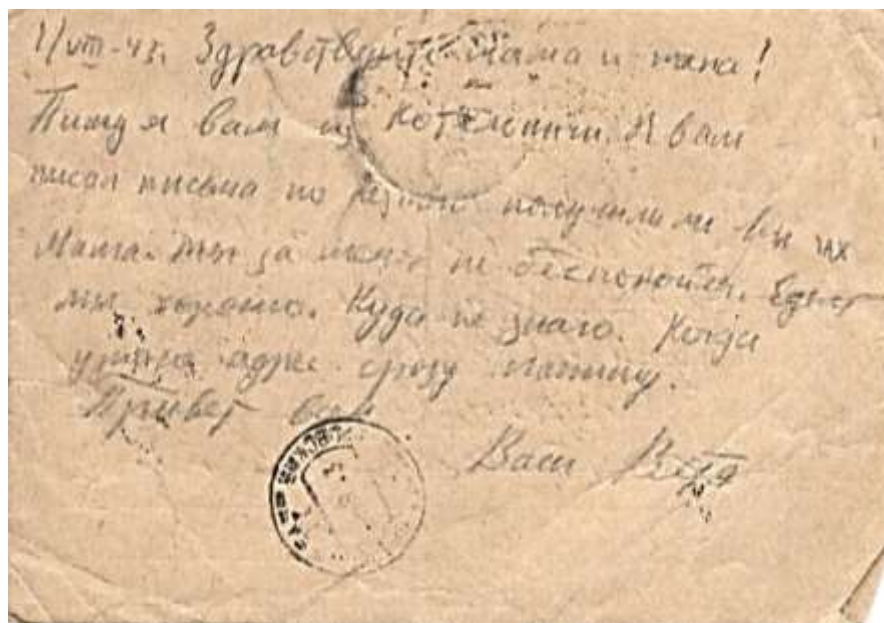 1/VIII-43. Здравствуйте мама и тата!
Пишу я вам из Котельничи. Я вам
писал письма по получили ли вы их
Мама. Ты за меня не беспокойся. Едем
мы хорошо. Куда не знаю. Когда
узнаю адрес сразу напишу.
Привет всем
Ваш Витя